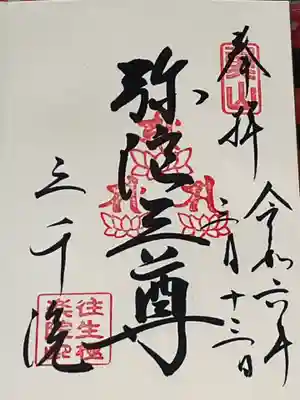 奉拝
魚山
令和六年
五月十三日
弥陀三尊
三千院
往生極
楽院印